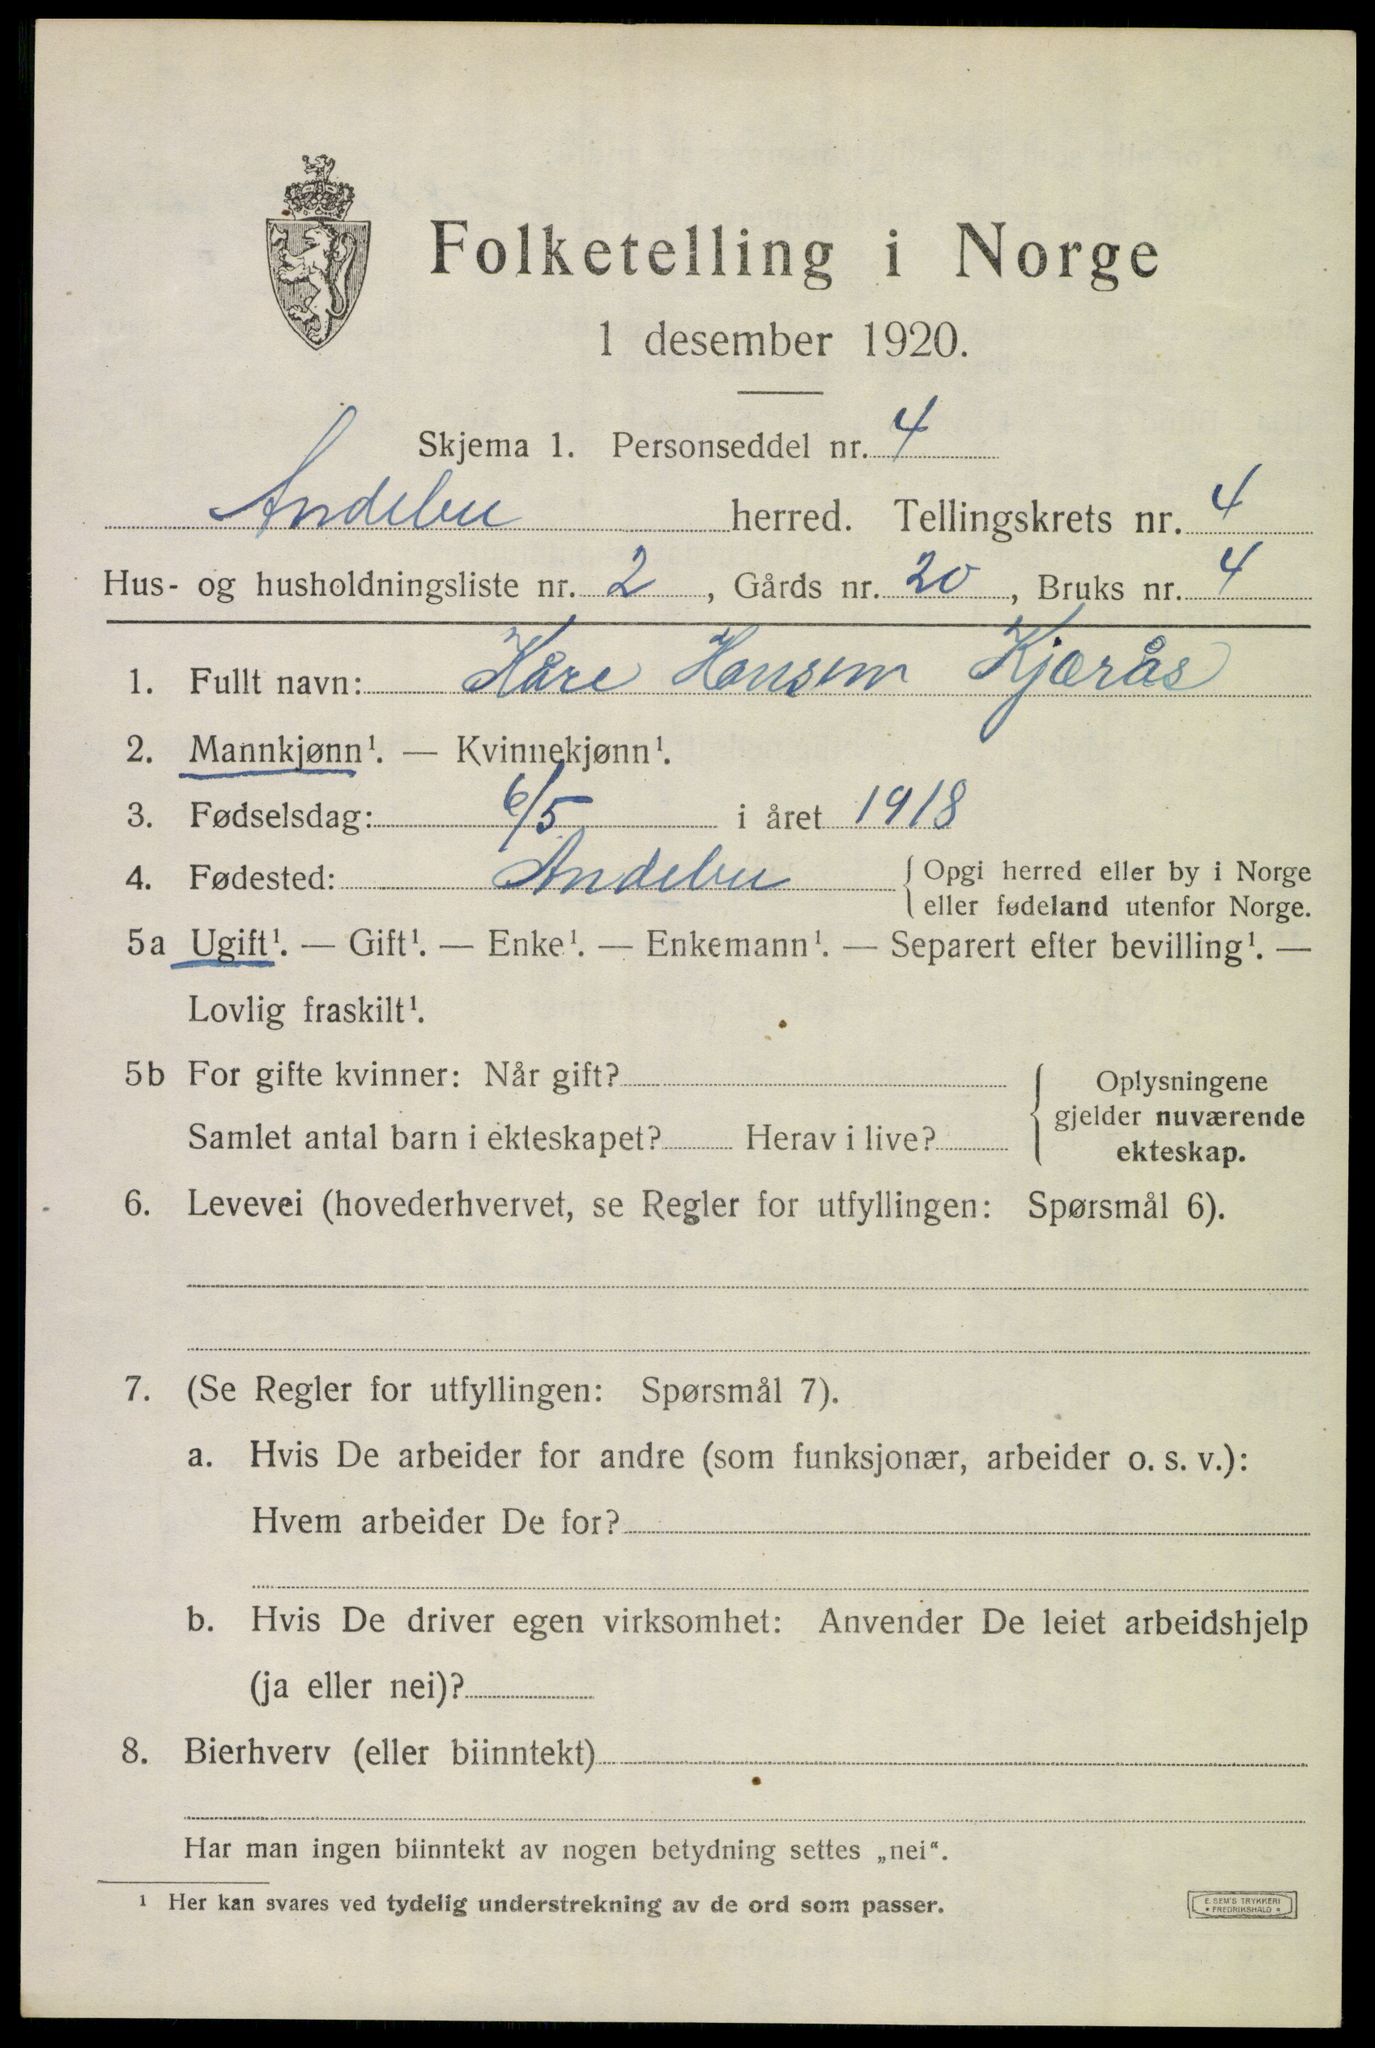 Folketelling i Norge
1 desember 1920.
Skjema 1. Personseddel nr. 4
Andebu herred. Tellingskrets nr. 4
Hus- og husholdningsliste nr. 2, Gårds nr. 20, Bruks nr. 4
1. Fullt navn: Kåre Hansen Kjærås
2. Mannkjønn¹. — Kvinnekjønn¹.
3. Fødselsdag: 6/5 i året 1918
4. Fødested: Andebu { Opgi herred eller by i Norge
eller fødeland utenfor Norge.
5a Ugift¹. — Gift¹. — Enke¹. — Enkemann¹. — Separert efter bevilling¹. —
Lovlig fraskilt¹.
5b For gifte kvinner: Når gift?
Samlet antal barn i ekteskapet? Herav i live?
{ Oplysningene
gjelder nuværende
ekteskap.
6. Levevei (hovederhvervet, se Regler for utfyllingen: Spørsmål 6).
7. (Se Regler for utfyllingen: Spørsmål 7).
a. Hvis De arbeider for andre (som funksjonær, arbeider o. s. v.):
Hvem arbeider De for?
b. Hvis De driver egen virksomhet: Anvender De leiet arbeidshjelp
(ja eller nei)?
8. Bierhverv (eller biinntekt)
Har man ingen biinntekt av nogen betydning settes „nei“.
¹ Her kan svares ved tydelig understrekning av de ord som passer.
E. SEM'S TRYKKERI
• FREDRIKSHALD •